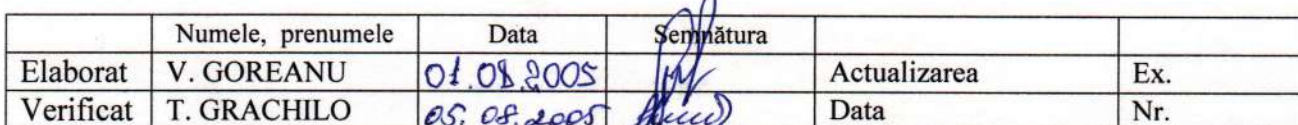 Numele, prenumele Data Semnătura
Elaborat V. GOREANU 01.08.2005 Actualizarea Ex.
Verificat T. GRACHILO 05.08.2005 Data Nr.